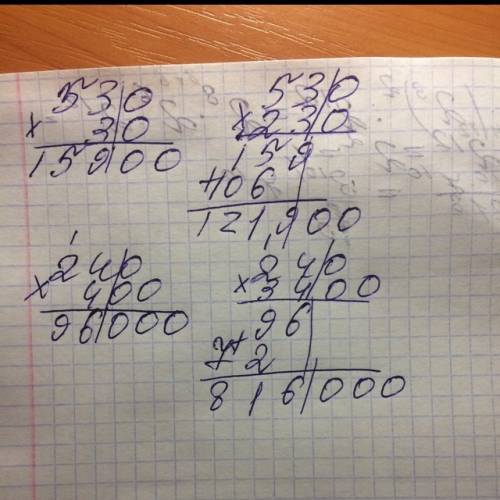 530
× 30
15900
530
×230
159
+106
121900
240
× 400
96000
240
×3400
96
+72
816000